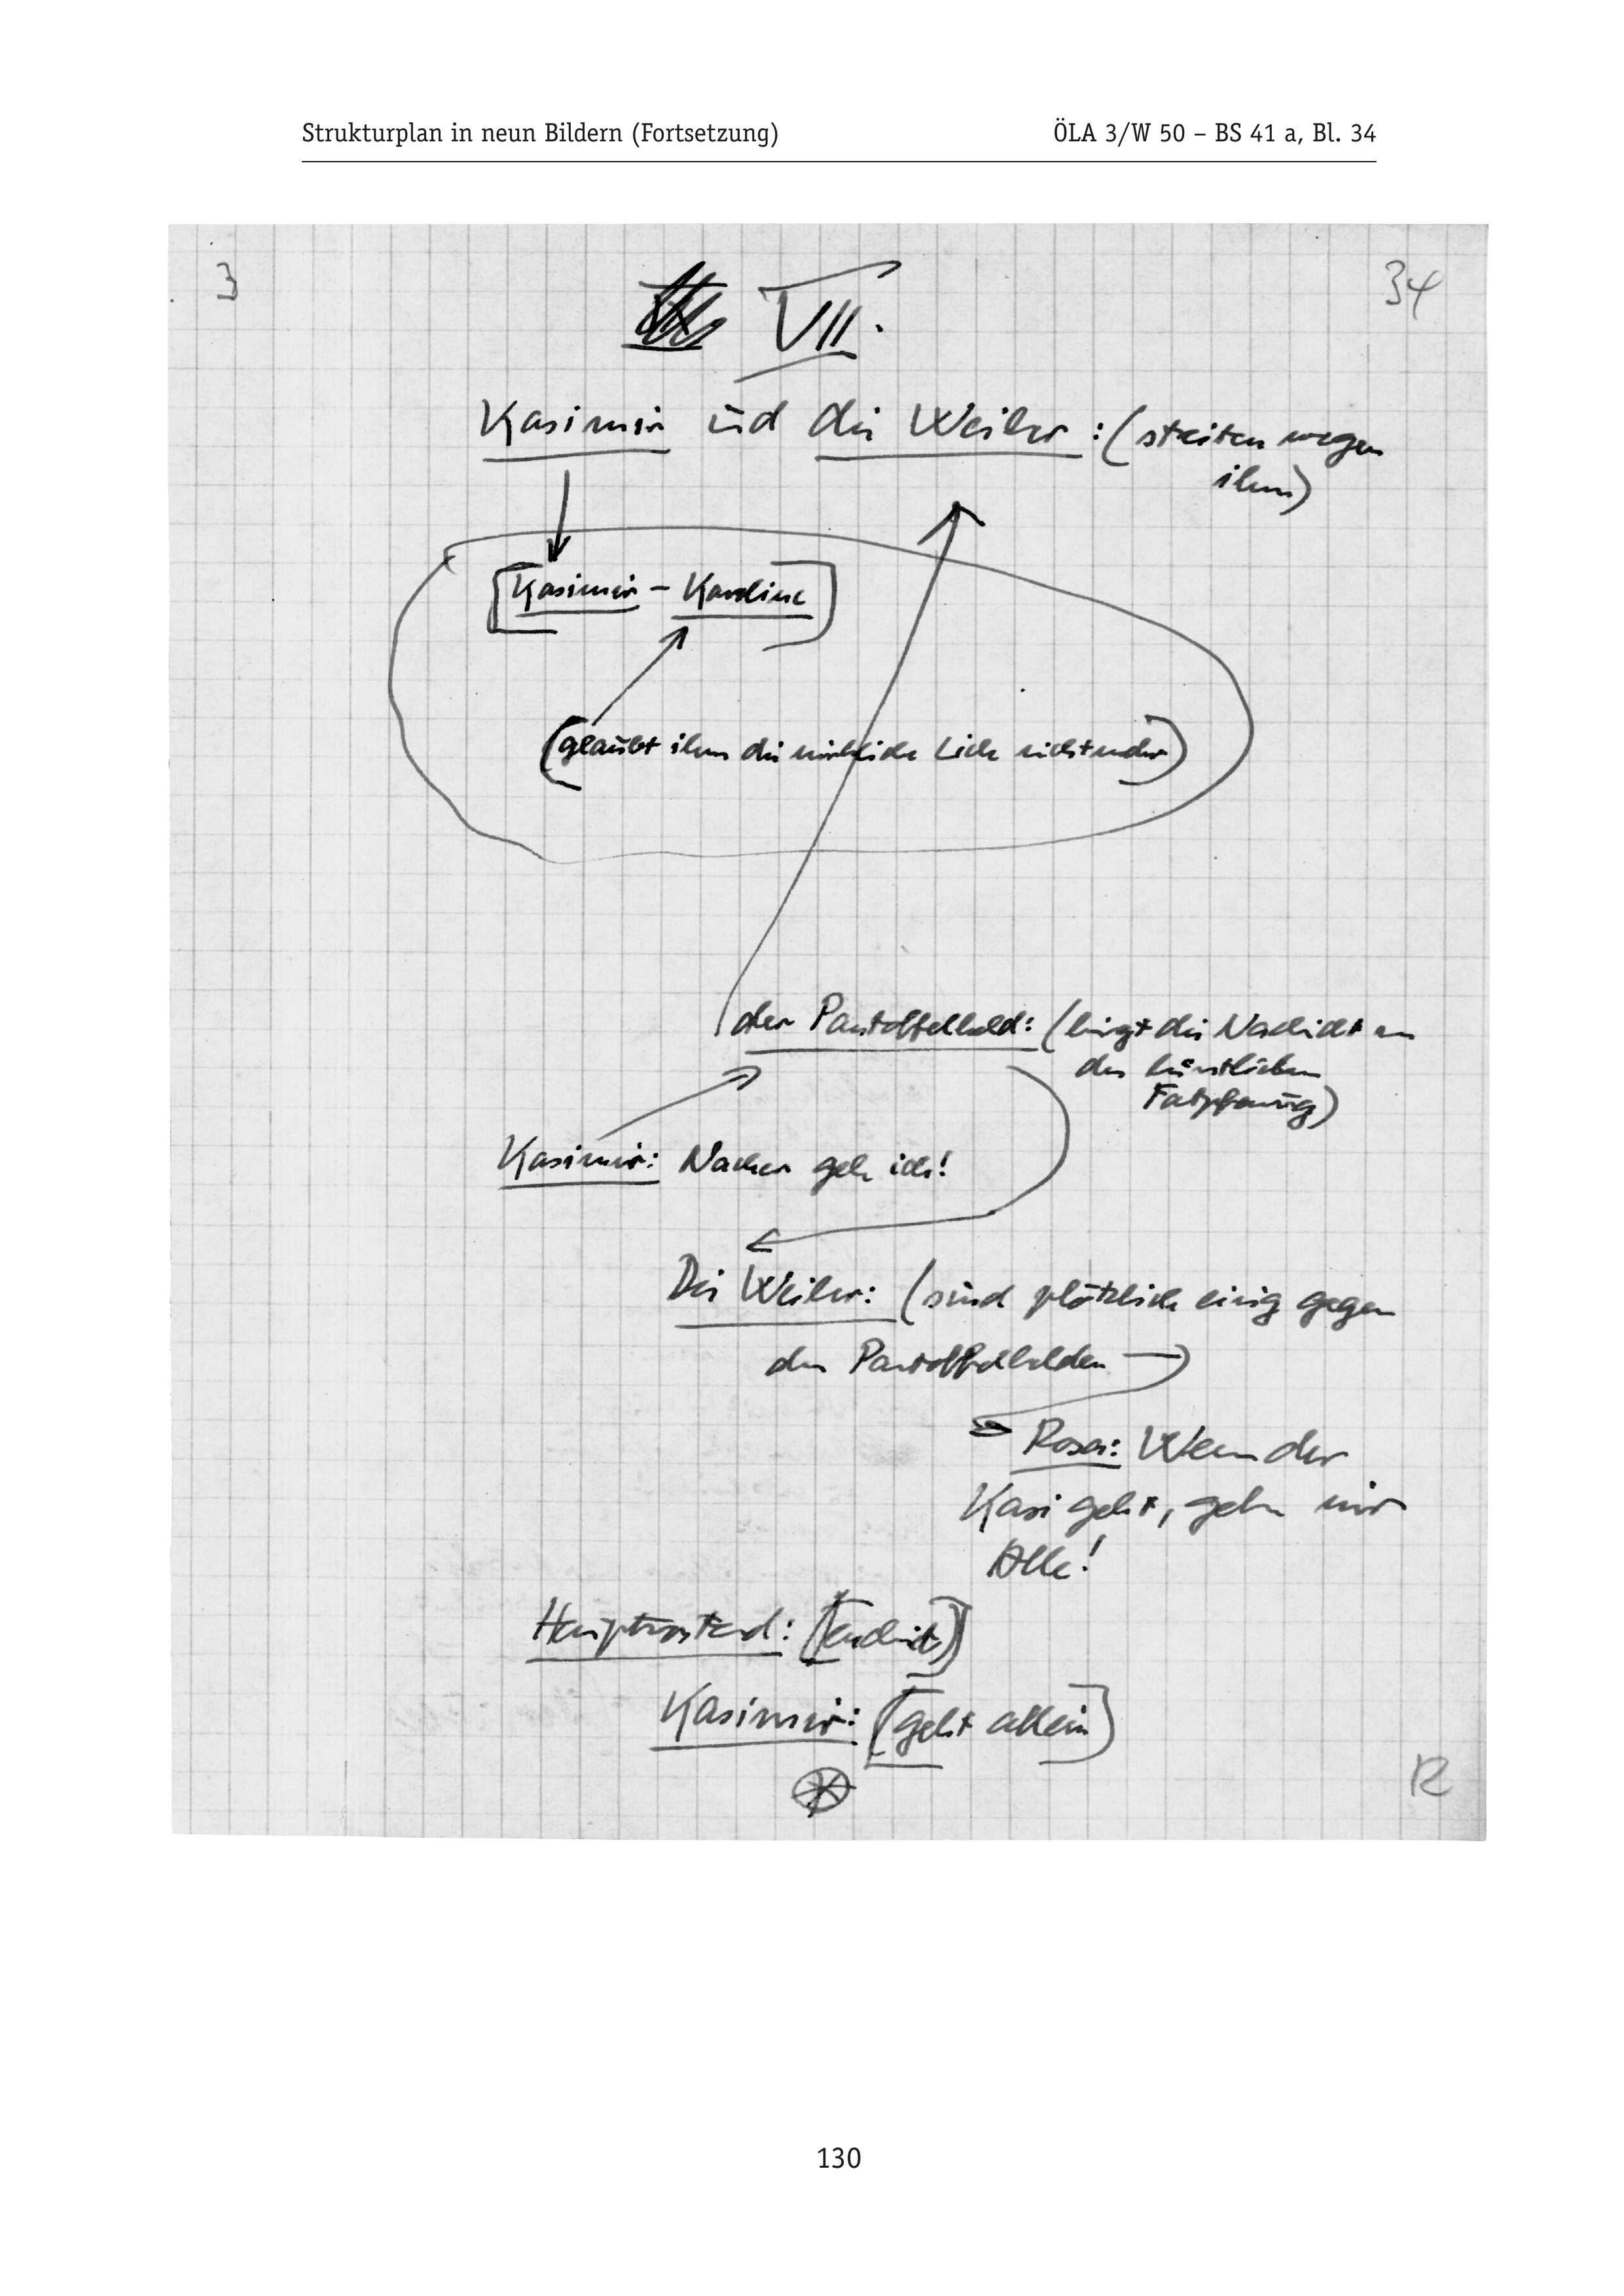 Strukturplan in neun Bildern (Fortsetzung) ÖLA 3/W 50 – BS 41 a, Bl. 34
3 34
VII.
Kasimir und die Weiber: (streiten wegen
ihm)
Kasimir – Karoline
(glaubt ihm die wirkliche Liebe nicht mehr)
der Pantoffelheld: (bringt die Nachricht von
der künstlichen
Kasimir: Nacher geh ich!
Die Weiber: (sind plötzlich einig gegen
den Pantoffelhelden
Rosa: Wenn der
Kasi geht, gehn wir
Alle!
Kasimir: (geht allein)
12
130